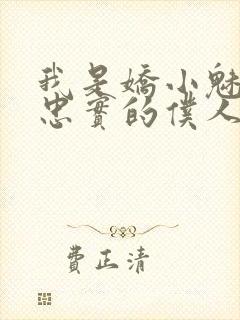 我是嬌小魅
忠實的僕人
費正清